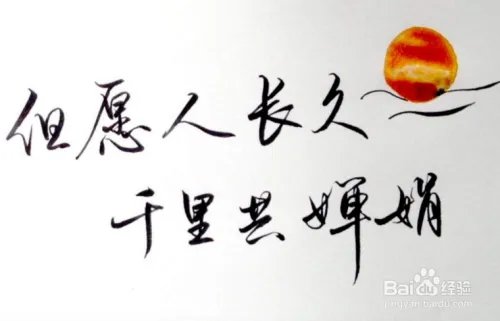 但愿人长久
千里共婵娟
Baidu经验
jingyan.baidu.com